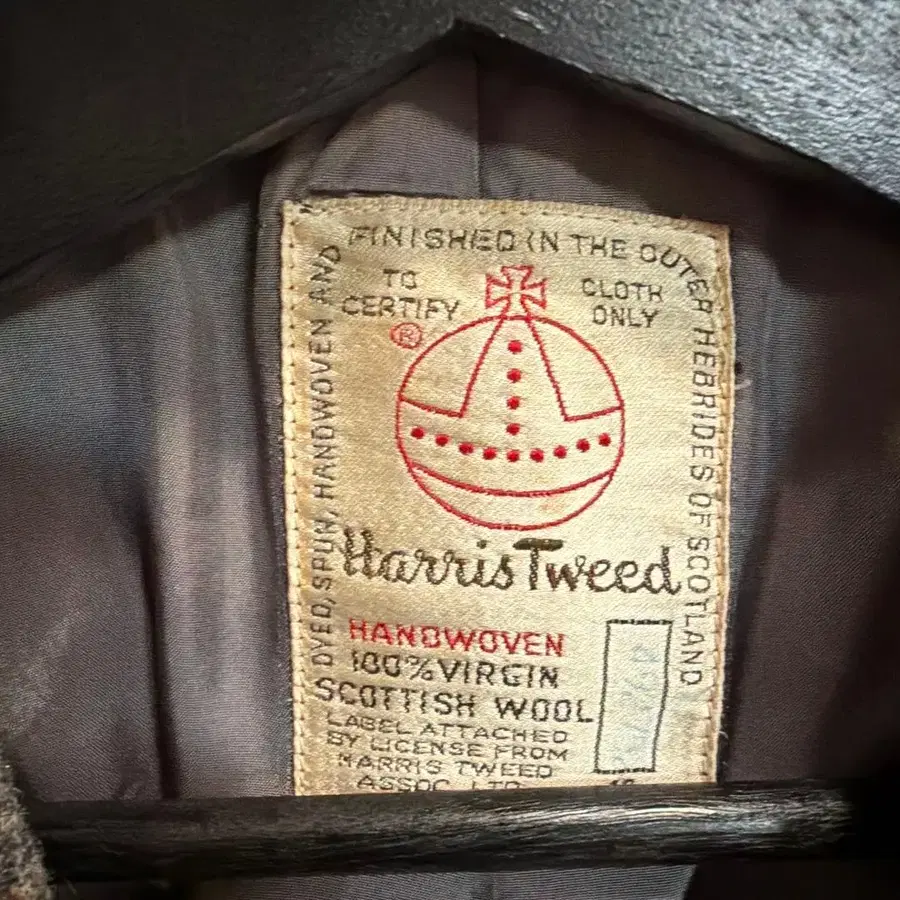 DYED, SPUN, HANDWOVEN AND FINISHED IN THE OUTER HEBRIDES OF SCOTLAND
TO CERTIFY
CLOTH ONLY
®
Harris Tweed
HANDWOVEN
100% VIRGIN
SCOTTISH WOOL
LABEL ATTACHED
BY LICENSE FROM
HARRIS TWEED
ASSOC. LTD